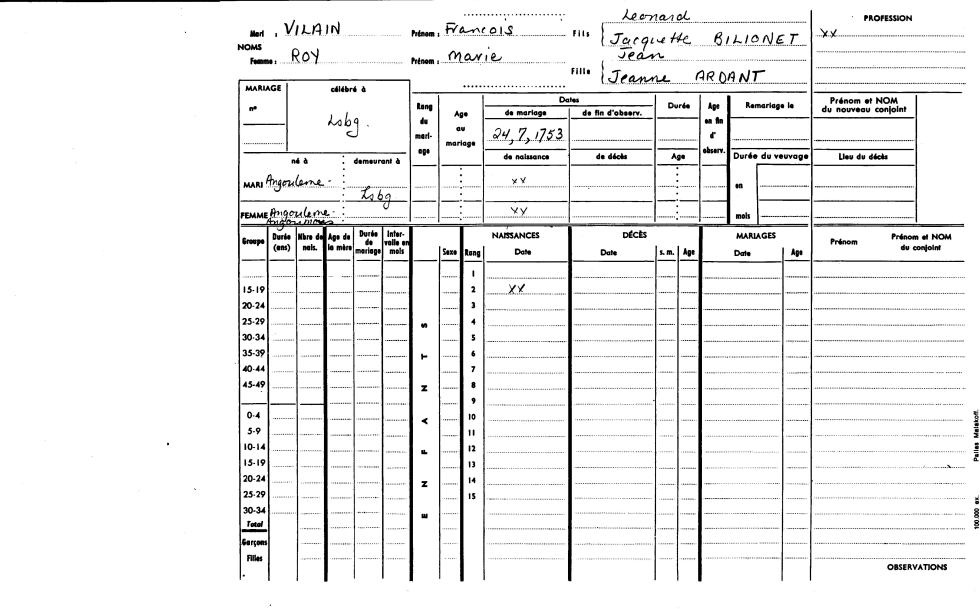 Leonard
Mari : VILAIN Prénom : Francois Fils { Jacquette BILIONET
PROFESSION
xx
NOMS
Femme : ROY Prénom : Marie Fille { Jean
Jeanne ARDANT
MARIAGE célébré à
n° Lsbg.
Rang du mari-age
Age au mariage
Dates
de mariage de fin d'observ.
24,7,1753
Durée
Age en fin d'observ.
Remariage le
Prénom et NOM du nouveau conjoint
né à demeurant à
de naissance de décès Age
Durée du veuvage
Lieu du décès
MARI Angouleme - Lsbg xx
en
FEMME Angouleme - xx
mois
Angoumois
Groupe Durée (ans) Nbre de nais. Age de la mère Durée de mariage Inter-valle en mois
E N F A N T S
Sexe Rang
NAISSANCES Date
DÉCÈS Date s. m. Age
MARIAGES Date Age
Prénom Prénom et NOM du conjoint
1
15-19 2 xx
20-24 3
25-29 4
30-34 5
35-39 6
40-44 7
45-49 8
9
0-4 10
5-9 11
10-14 12
15-19 13
20-24 14
25-29 15
30-34
Total
Garçons
Filles
OBSERVATIONS
100.000 ex.